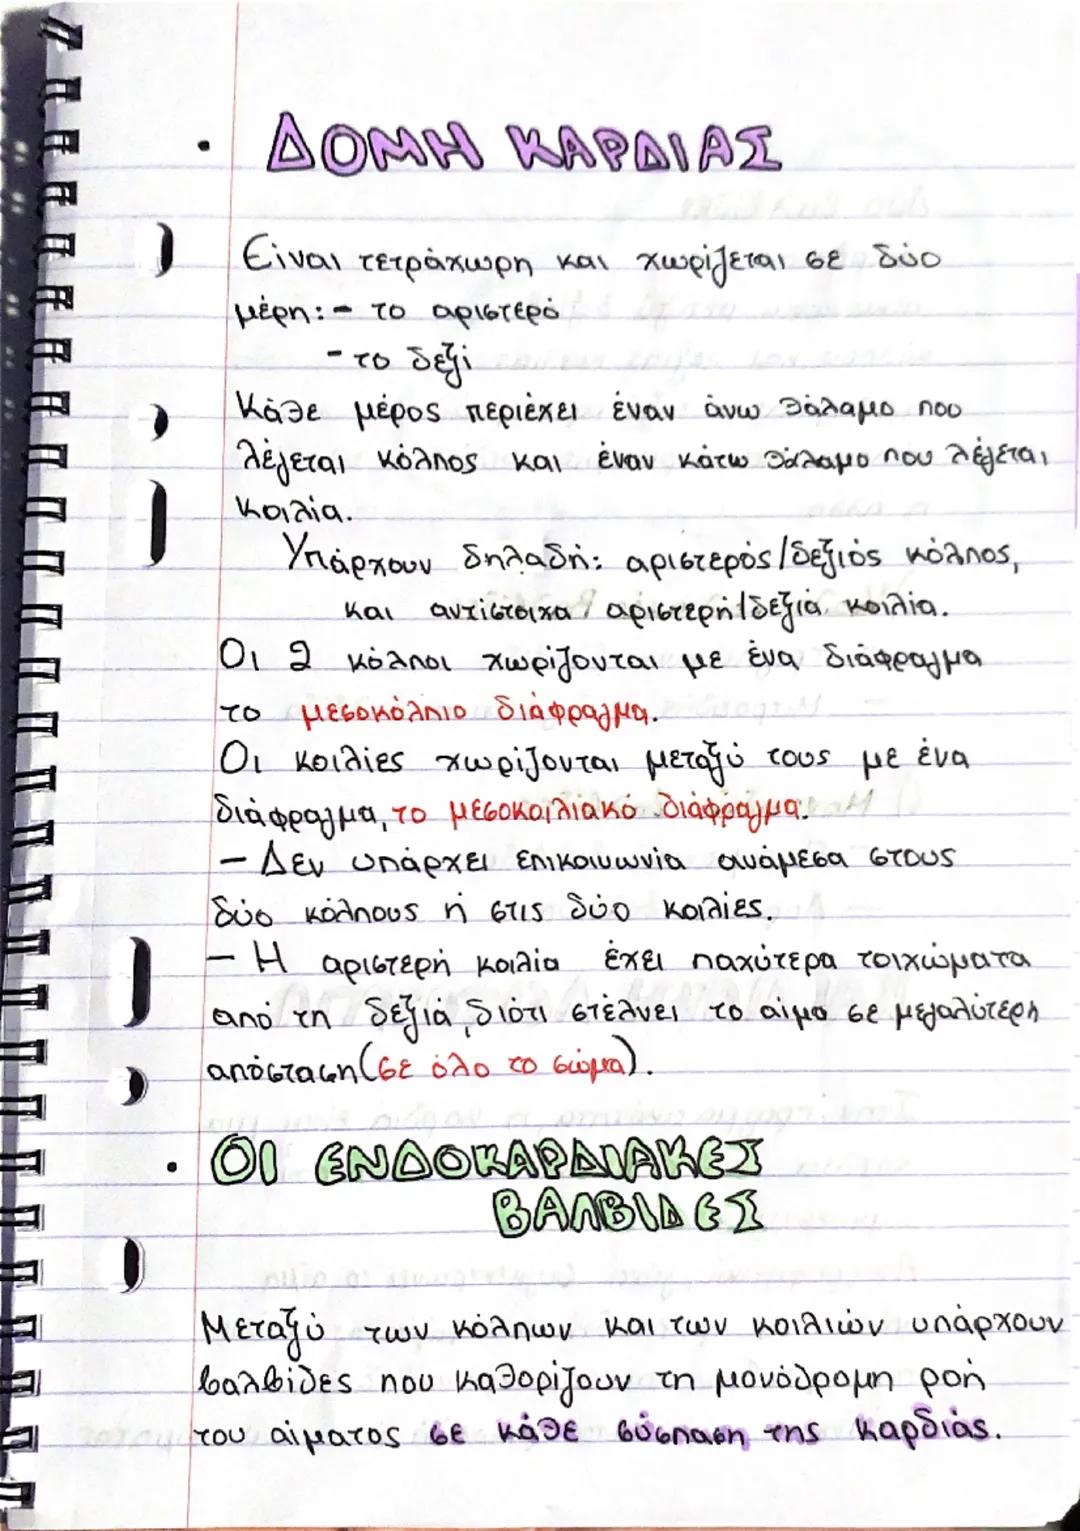 · ΔΟΜΗ ΚΑΡΔΙΑΣ
Είναι τετράχωρη και χωρίζεται σε δύο
μέρη: - το αριστερό
- το δεξί
Κάθε μέρος περιέχει έναν άνω θάλαμο που
λέγεται κόλπος και έναν κάτω θάλαμο που λέγεται
κοιλία.
Υπάρχουν δηλαδή: αριστερός/δεξιός κόλπος,
και αντίστοιχα αριστερή/δεξιά κοιλία.
Οι 2 κόλποι χωρίζονται με ένα διάφραγμα
το μεσοκόλπιο διάφραγμα.
Οι κοιλίες χωρίζονται μεταξύ τους με ένα
διάφραγμα, το μεσοκοιλιακό διάφραγμα.
- Δεν υπάρχει επικοινωνία ανάμεσα στους
δύο κόλπους ή στις δύο κοιλίες.
- Η αριστερή κοιλία έχει παχύτερα τοιχώματα
από τη δεξιά, διότι στέλνει το αίμα σε μεγαλύτερη
απόσταση (σε όλο το σώμα).
· ΟΙ ΕΝΔΟΚΑΡΔΙΑΚΕΣ
ΒΑΛΒΙΔΕΣ
Μεταξύ των κόλπων και των κοιλιών υπάρχουν
βαλβίδες που καθορίζουν τη μονόδρομη ροή
του αίματος σε κάθε σύσπαση της καρδιάς.